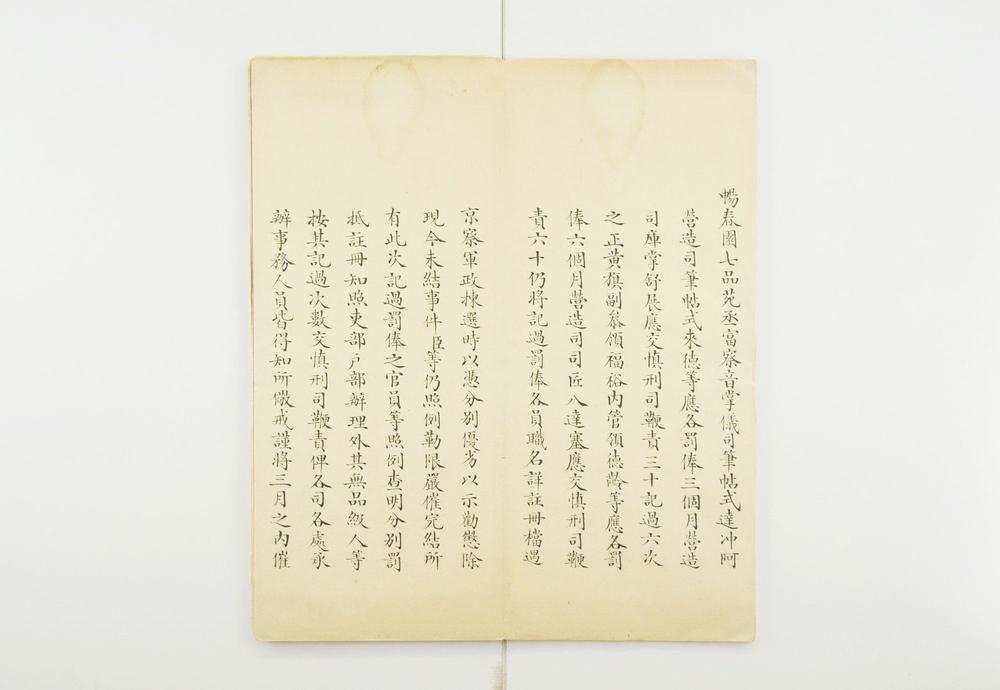 暢春園七品苑丞富察音掌儀司筆帖式達冲阿
營造司筆帖式來德等應各罰俸三個月營造
司庫掌舒展應交慎刑司鞭責三十記過六次
之正黃旗副叅領福裕內管領德齡等應各罰
俸六個月營造司司匠八達塞應交慎刑司鞭
責六十仍將記過罰俸各員職名詳註冊檔遇
京察軍政揀選時以憑分別優劣以示勸懲除
現今未結事件臣等仍照例勒限嚴催完結所
有此次記過罰俸之官員等照例查明分別罰
抵註冊知照吏部戶部辦理外其無品級人等
按其記過次數交慎刑司鞭責俾各司各處承
辦事務人員皆得知所儆戒謹將三月之內催